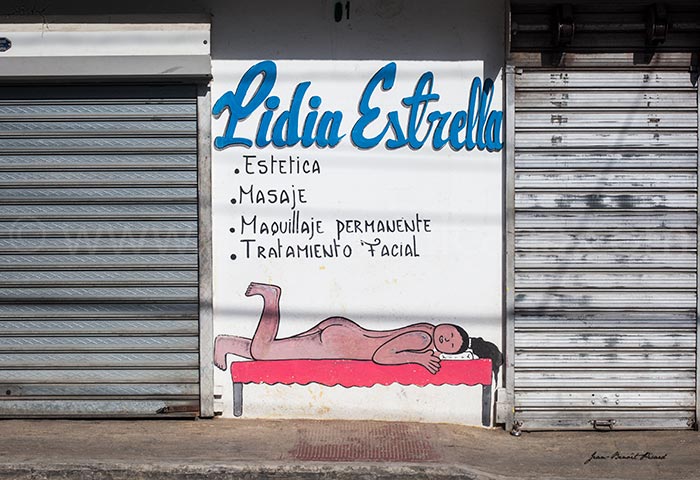 Lidia Estrella
.Estetica
.Masaje
.Maquillaje permanente
.Tratamiento Facial
Jean-Benoît Picard